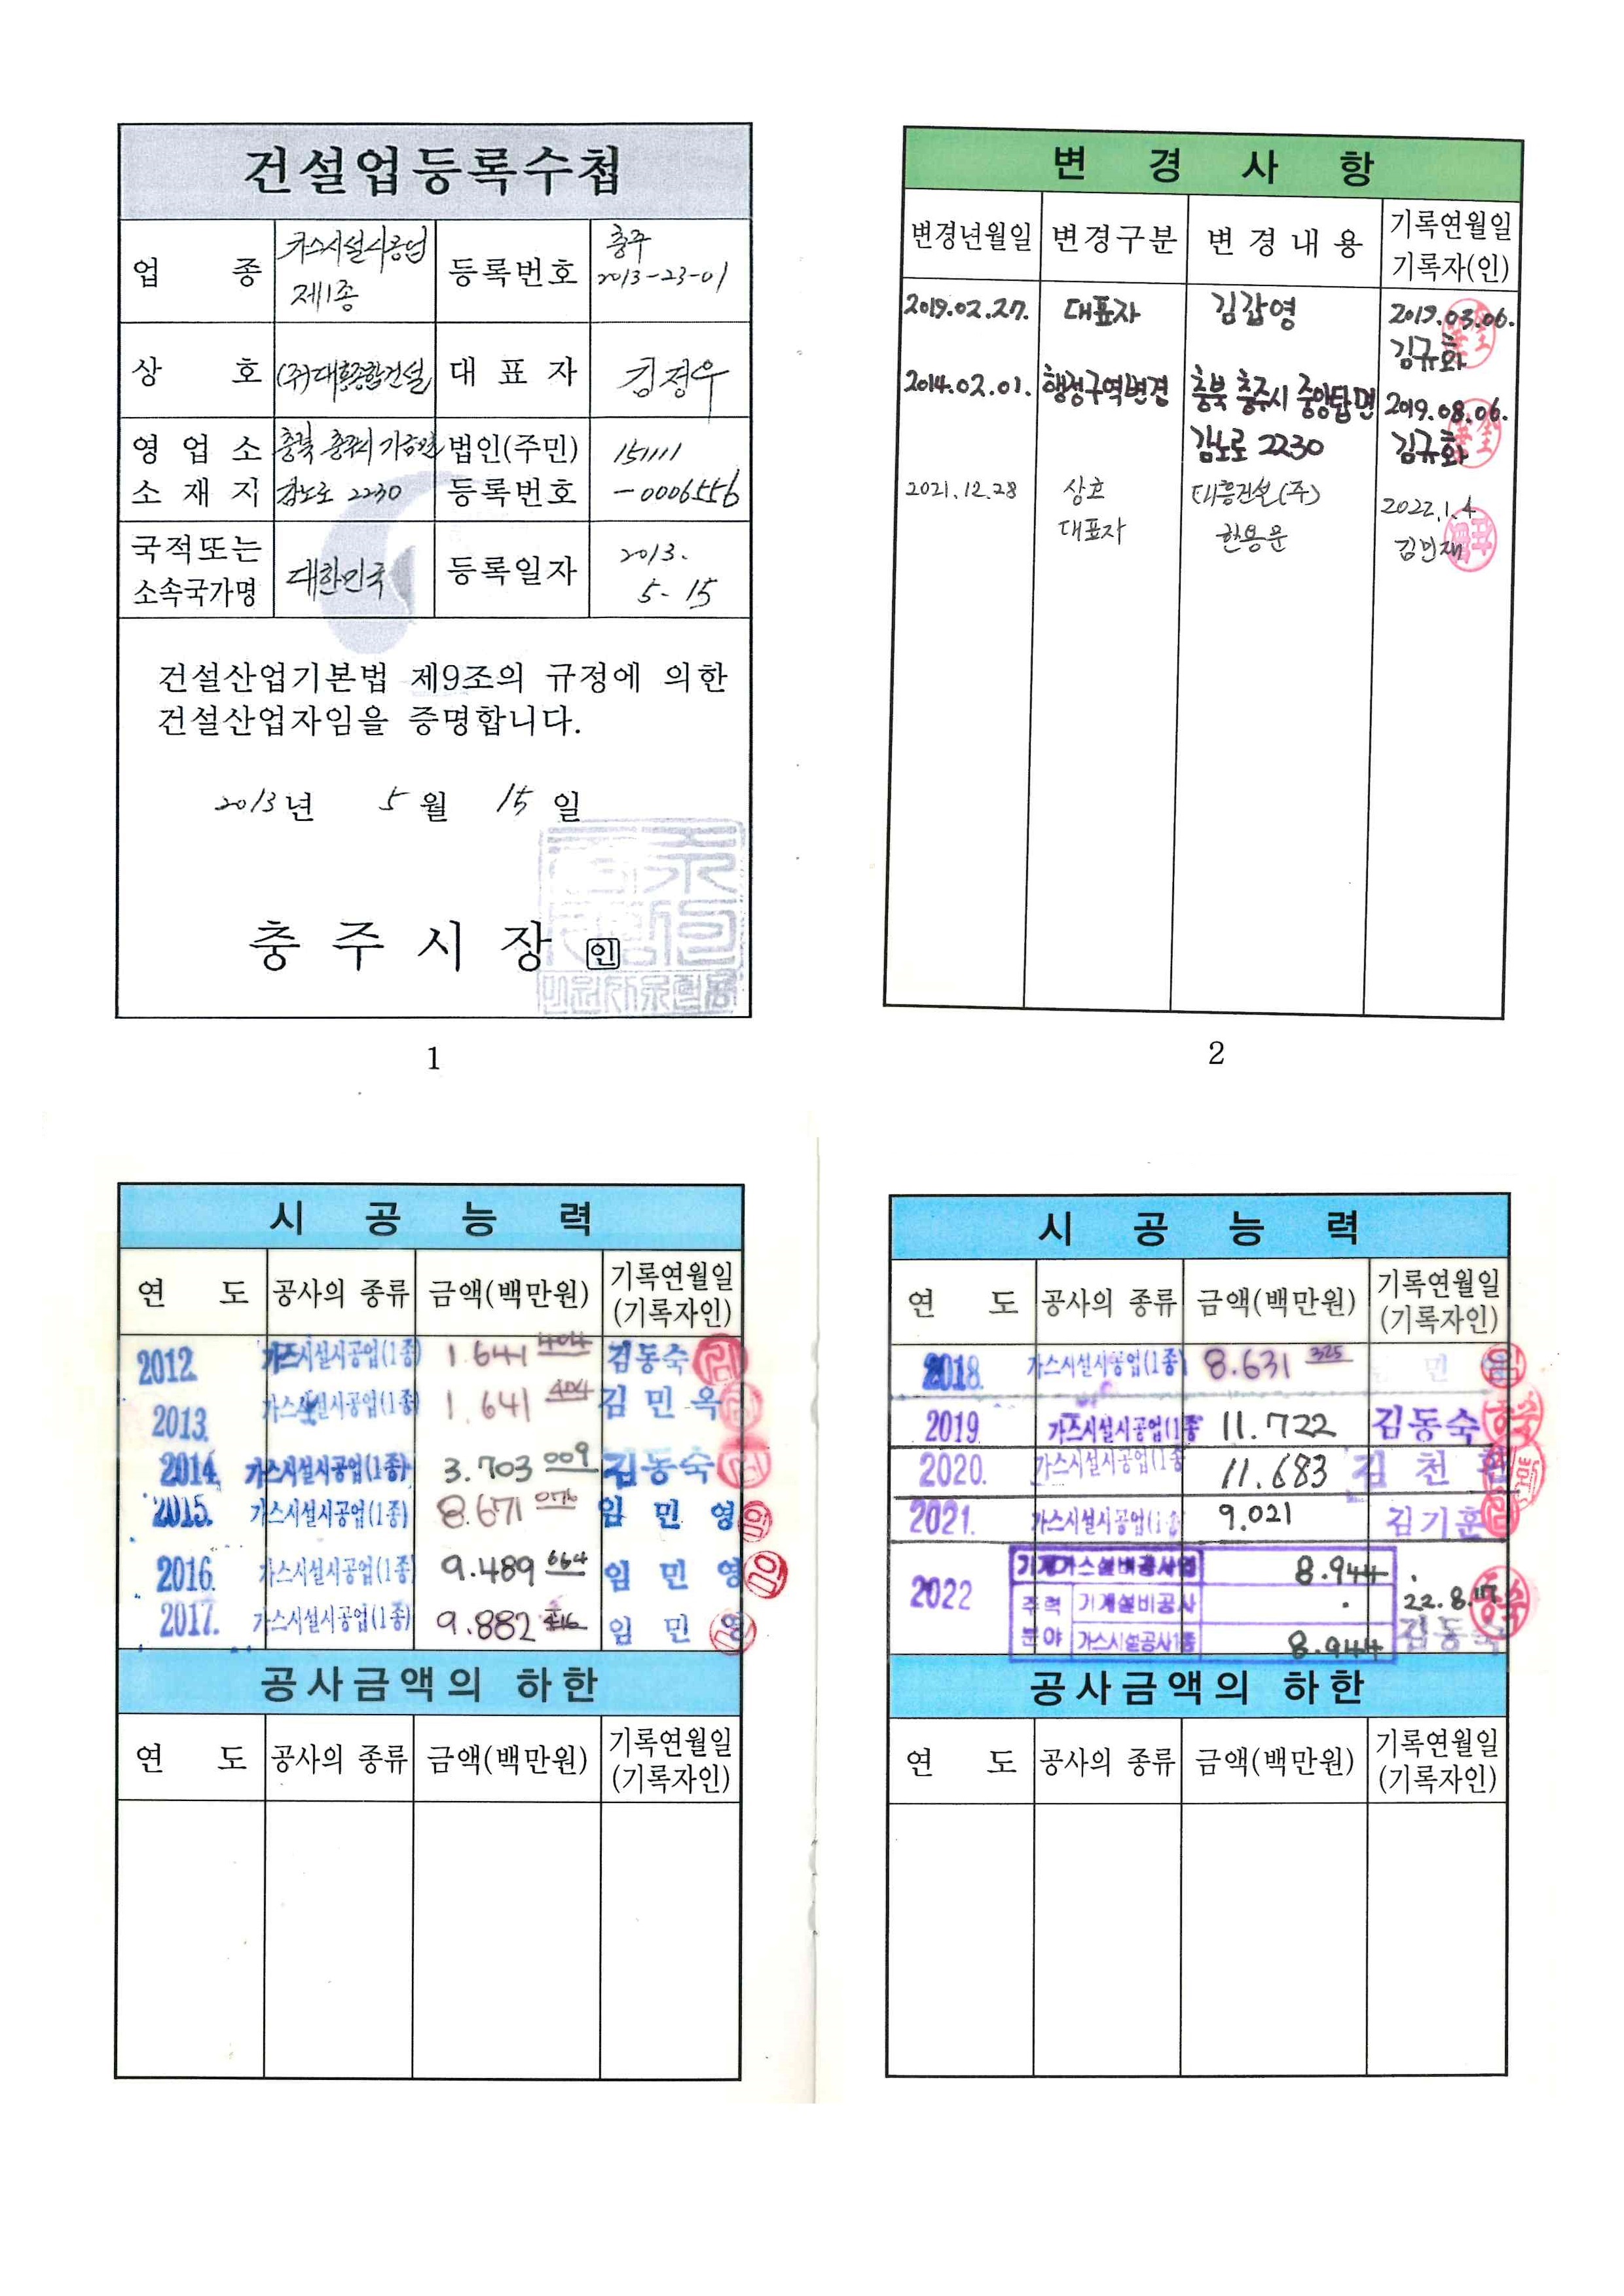 건설업등록수첩
업 종 가스시설시공업 제1종 등록번호 충주 2013-23-01
상 호 (주)대흥종합건설 대 표 자 김정우
영 업 소 소 재 지 충북 충주시 가금면 김노로 2230 법인(주민) 등록번호 151111-0006556
국적또는 소속국가명 대한민국 등록일자 2013. 5-15
건설산업기본법 제9조의 규정에 의한
건설산업자임을 증명합니다.
2013년 5월 15일
충 주 시 장 인
1
변 경 사 항
변경년월일 변경구분 변 경 내 용 기록연월일 기록자(인)
2019.02.27. 대표자 김갑영 2019.03.06.
김규화
2014.02.01. 행정구역변경 충북 충주시 중앙탑면 2019.08.06.
김노로 2230 김규화
2021.12.28 상호 대흥건설(주) 2022.1.4
대표자 한용운 김민재
2
시 공 능 력
연 도 공사의 종류 금액(백만원) 기록연월일 (기록자인)
2012. 가스시설시공업(1종) 1.641 404 김동숙
2013. 가스시설시공업(1종) 1.641 404 김민옥
2014. 가스시설시공업(1종) 3.703 009 김동숙
2015. 가스시설시공업(1종) 8.671 076 임 민 영
2016. 가스시설시공업(1종) 9.489 664 임 민 영
2017. 가스시설시공업(1종) 9.882 임 민 영
공사금액의 하한
연 도 공사의 종류 금액(백만원) 기록연월일 (기록자인)
시 공 능 력
연 도 공사의 종류 금액(백만원) 기록연월일 (기록자인)
2018. 가스시설시공업(1종) 8.631 325 민
2019. 가스시설시공업(1종 11.722 김동숙
2020. 가스시설시공업(1종 11.683 김 천
2021. 가스시설시공업(1종 9.021 김기훈
2022 기계가스설비공사업 8.944
주력 기계설비공사 . 22.8.17
분야 가스시설공사1종 8.944 김동숙
공사금액의 하한
연 도 공사의 종류 금액(백만원) 기록연월일 (기록자인)